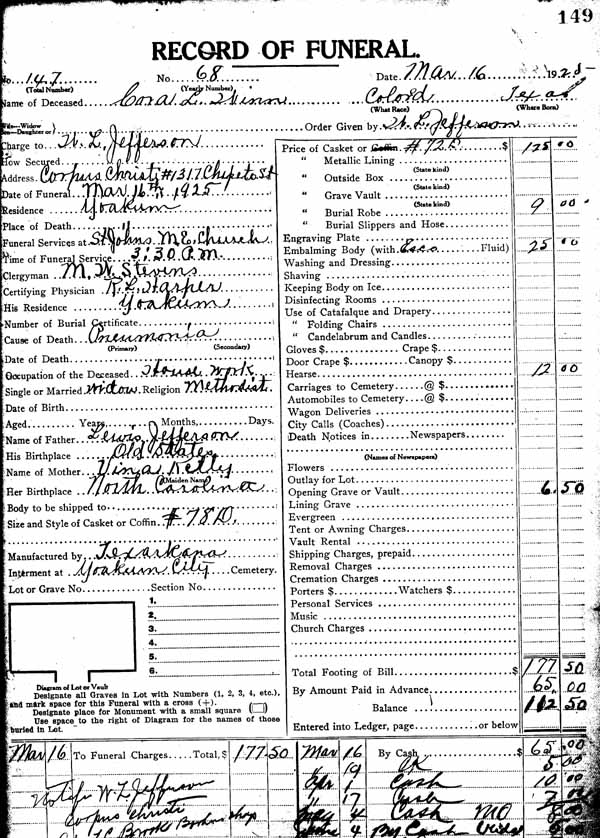 149
RECORD OF FUNERAL.
No. 147 No. 68 Date Mar 16 1925
(Total Number) (Yearly Number)
Name of Deceased Cora L. Colored Texas
(What Race) (Where Born)
Order Given by W. L. Jefferson
Charge to W. L. Jefferson
How Secured
Address Corpus Christi #1317 Chipeto St
Date of Funeral Mar 16th, 1925
Residence Yoakum
Place of Death "
Funeral Services at St Johns M.E. Church
Time of Funeral Service 3:30 P.M.
Clergyman M. W. Stevens
Certifying Physician Harper
His Residence Yoakum
Number of Burial Certificate
Cause of Death Pneumonia
(Primary) (Secondary)
Date of Death
Occupation of the Deceased House Work
Single or Married widow Religion Methodist
Date of Birth
Aged Years Months, Days.
Name of Father Lewis Jefferson
His Birthplace Old States
Name of Mother Kelly
(Maiden Name)
Her Birthplace North Carolina
Body to be shipped to
Size and Style of Casket or Coffin #78D.
Manufactured by Texarkana
Interment at Yoakum City Cemetery.
Lot or Grave No. Section No.
1.
2.
3.
4.
5.
6.
Diagram of Lot or Vault
Designate all Graves in Lot with Numbers (1, 2, 3, 4, etc.),
and mark space for this Funeral with a cross (+).
Designate place for Monument with a small square
Use space to the right of Diagram for the names of those
buried in Lot.
Price of Casket or Coffin $ 125 00
" Metallic Lining
(State kind)
" Outside Box
(State kind)
" Grave Vault
(State kind)
" Burial Robe 9 00
" Burial Slippers and Hose
Engraving Plate
Embalming Body (with Fluid) 25 00
Washing and Dressing
Shaving
Keeping Body on Ice
Disinfecting Rooms
Use of Catafalque and Drapery
" Folding Chairs
" Candelabrum and Candles
Gloves $ Crape $
Door Crape $ Canopy $
Hearse 12 00
Carriages to Cemetery @ $
Automobiles to Cemetery @ $
Wagon Deliveries
City Calls (Coaches)
Death Notices in Newspapers
(Names of Newspapers)
Flowers
Outlay for Lot
Opening Grave or Vault 6.50
Lining Grave
Evergreen
Tent or Awning Charges
Vault Rental
Shipping Charges, prepaid
Removal Charges
Cremation Charges
Porters $ Watchers $
Personal Services
Music
Church Charges
Total Footing of Bill $ 177 50
By Amount Paid in Advance 65 00
Balance 112 50
Entered into Ledger, page or below
Mar 16 To Funeral Charges Total, $ 177 50 Mar 16 By Cash 65 00
" 19 5 00
Notify W. L. Jefferson Apr 1 Cash 10 00
corpus christi " 17
4 Cash MO
4 By Cash